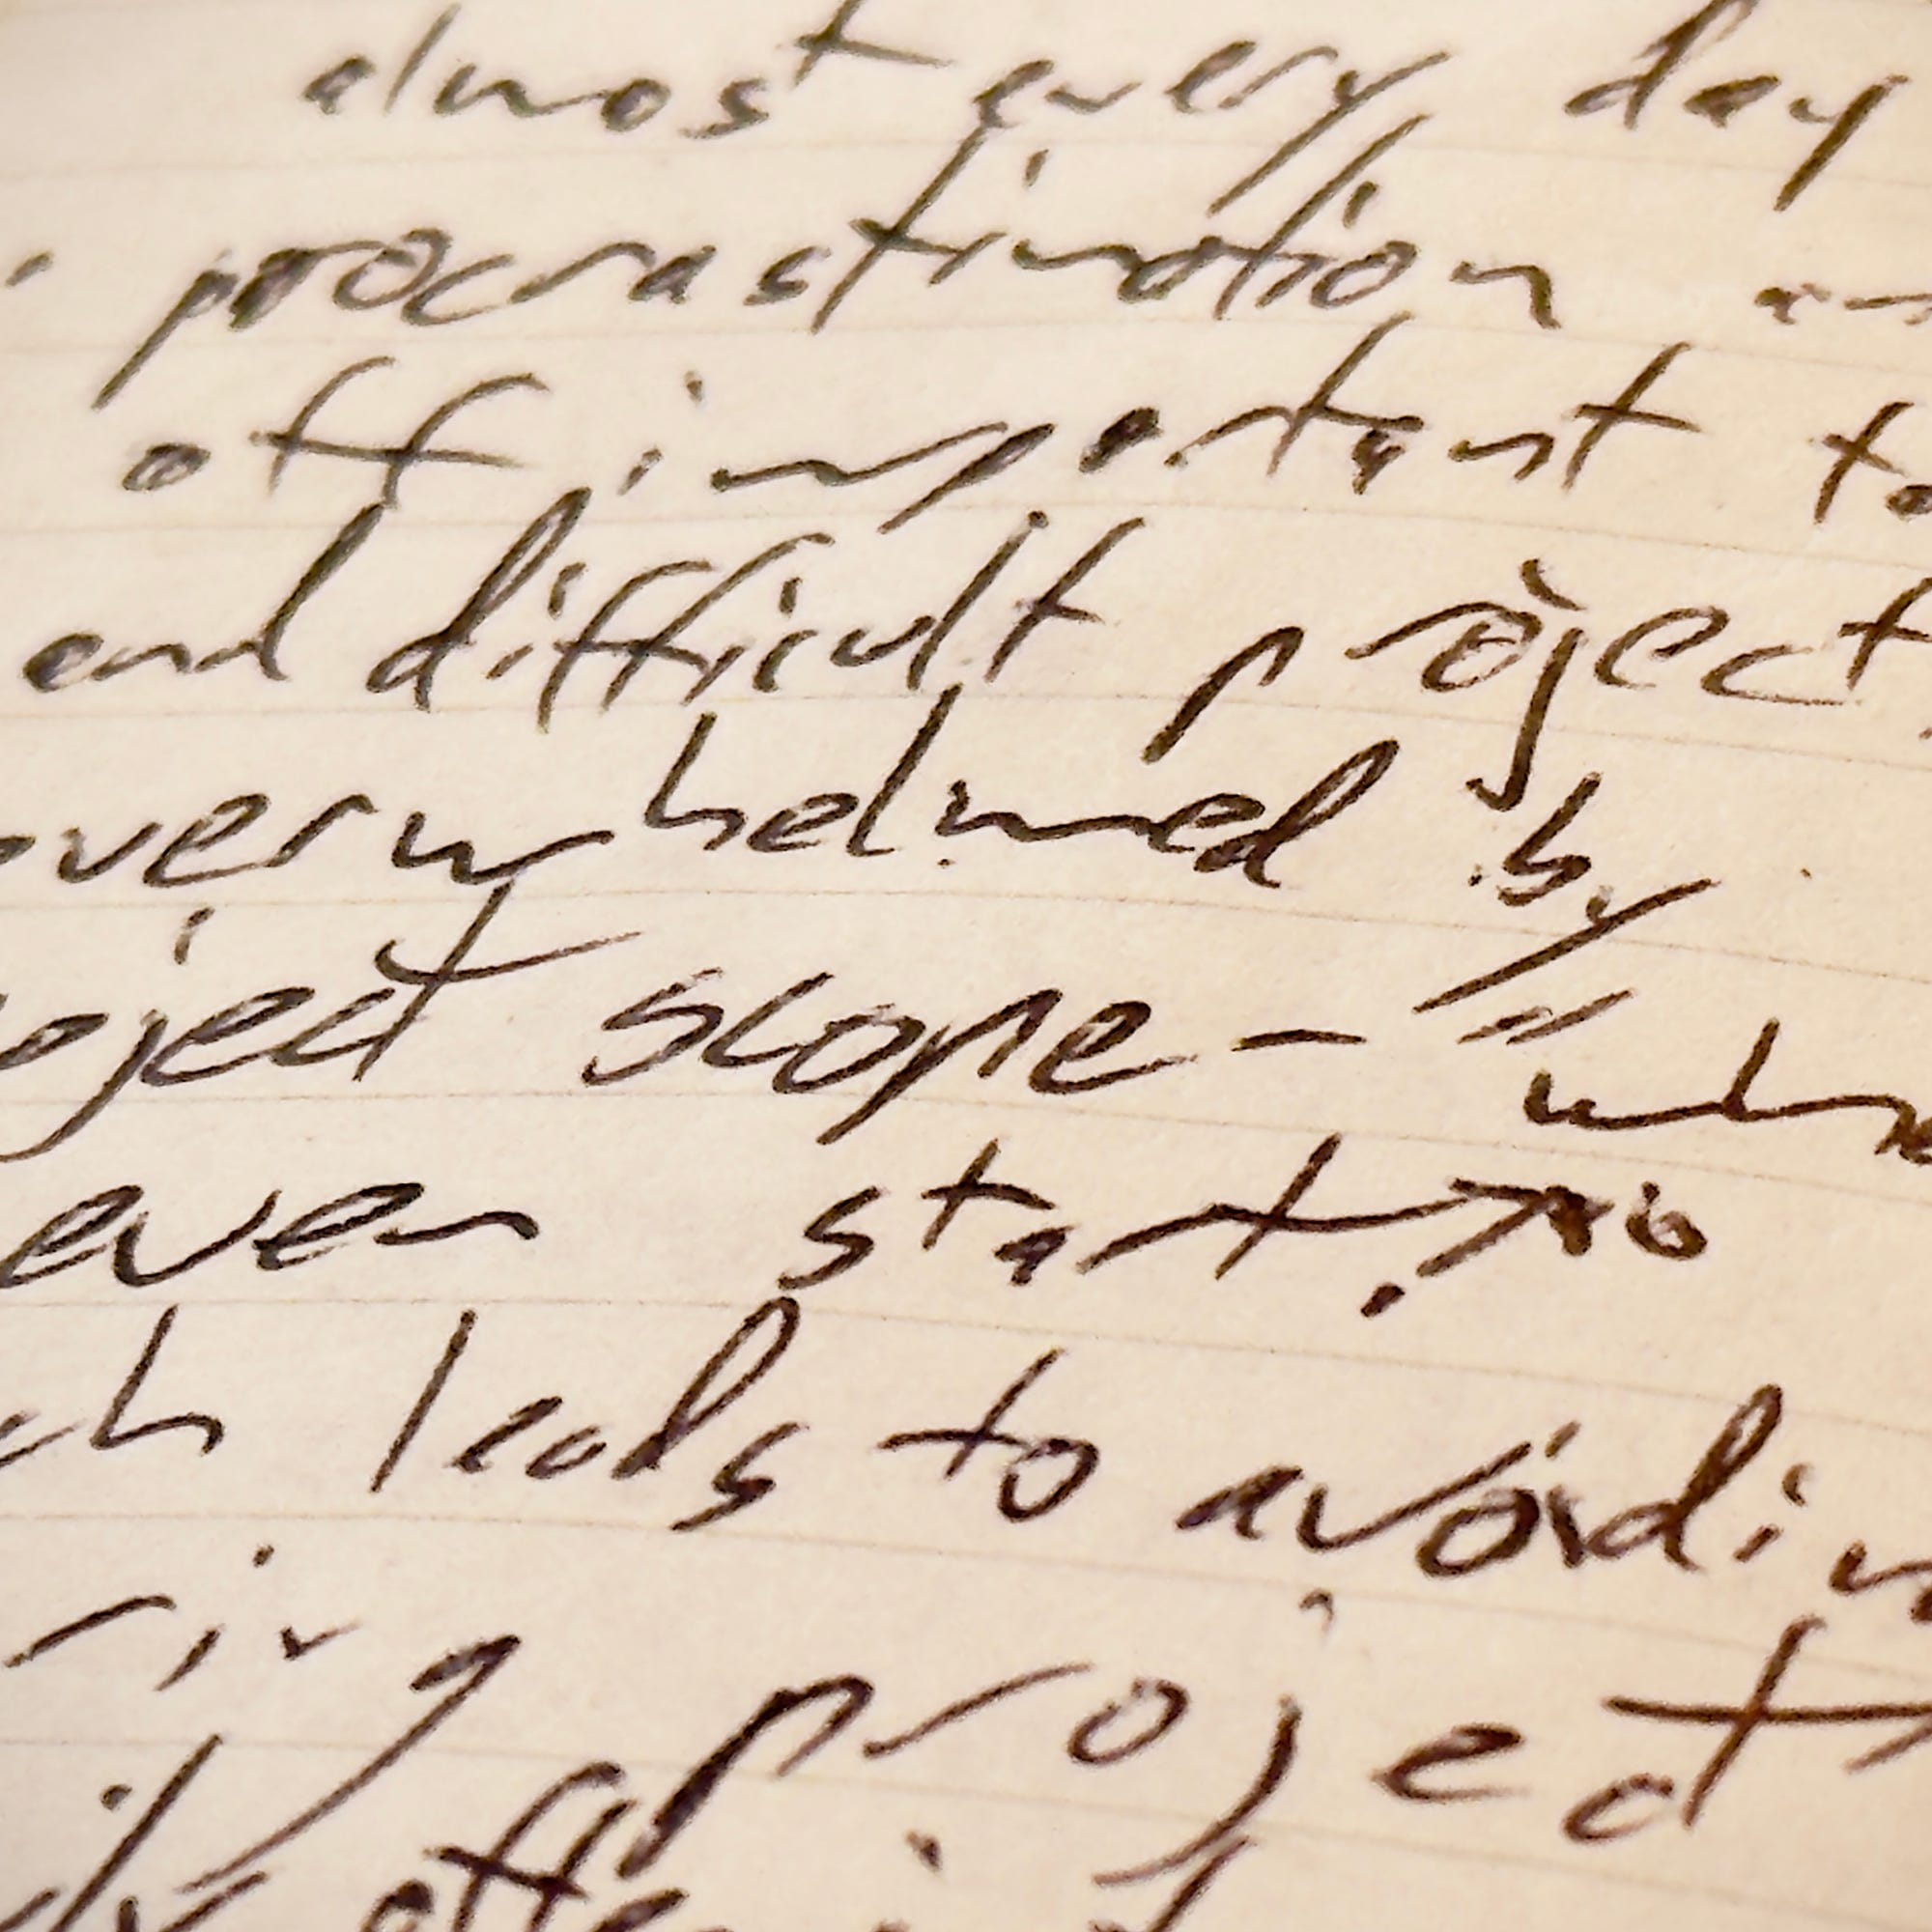 almost every day
procrastination
off important
and difficult project
overwhelmed by
project scope - "whe
even start?"
leads to avoidin
project